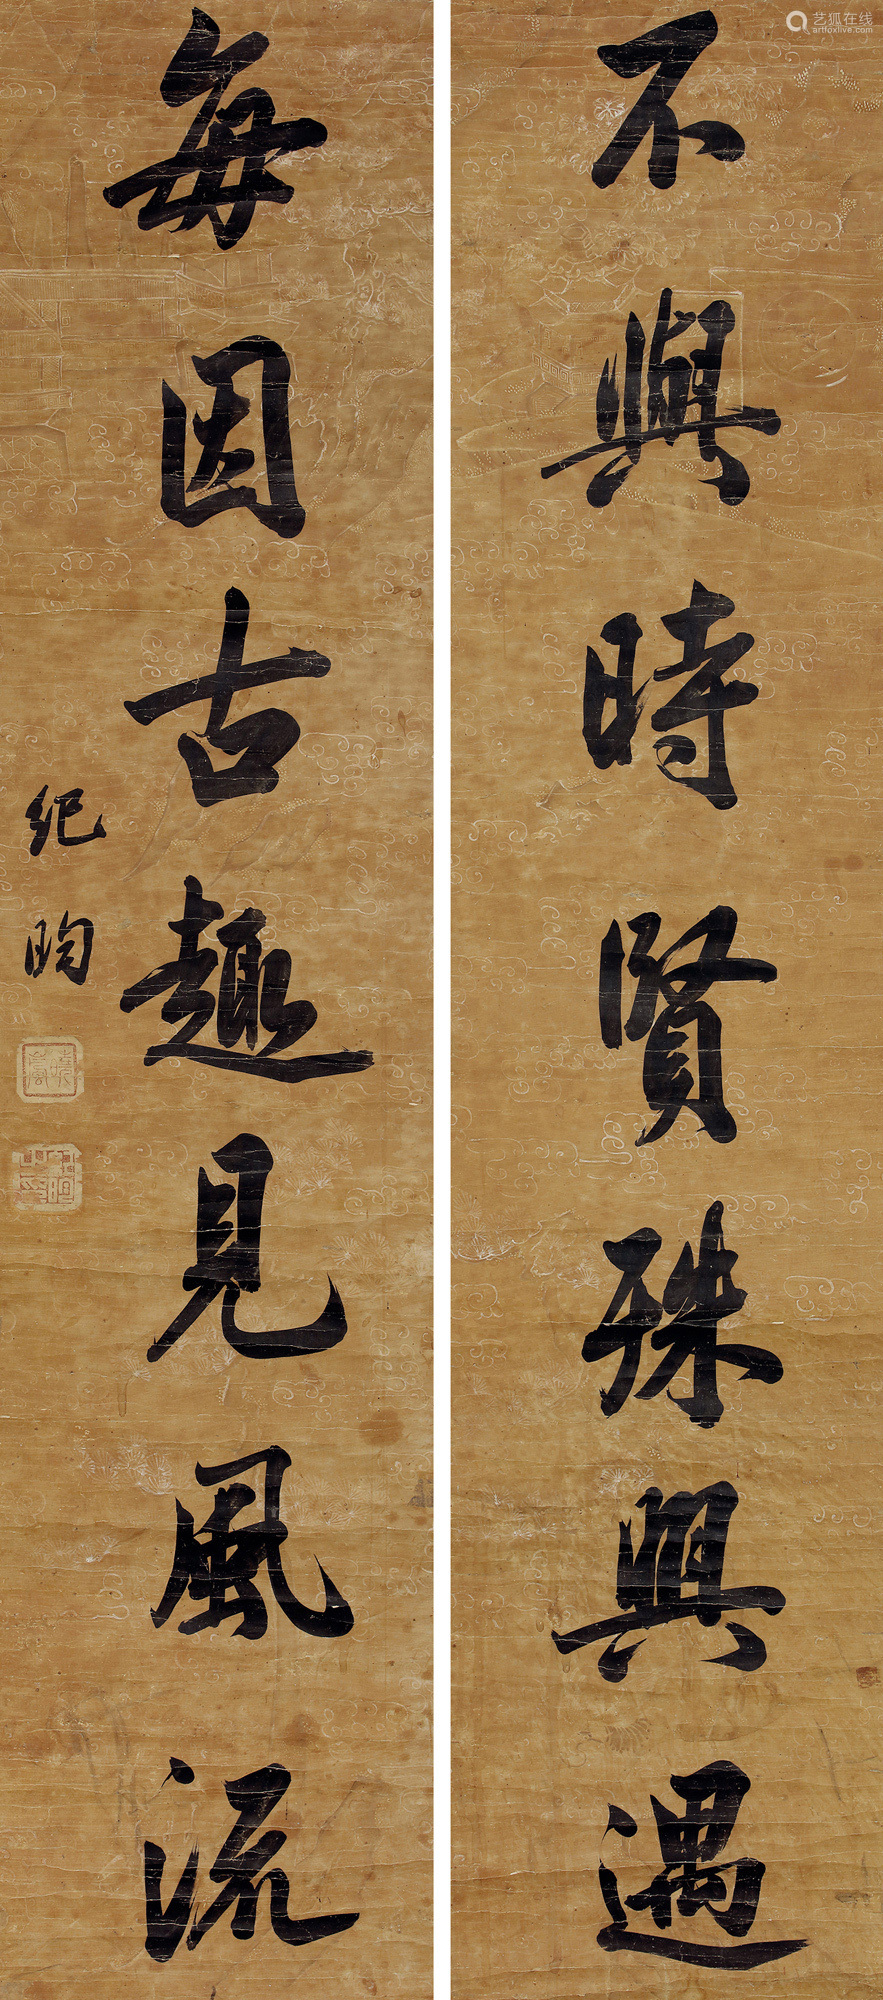 不與時賢殊興遇
每因古趣見風流
紀昀
艺狐在线
artfoxlive.com